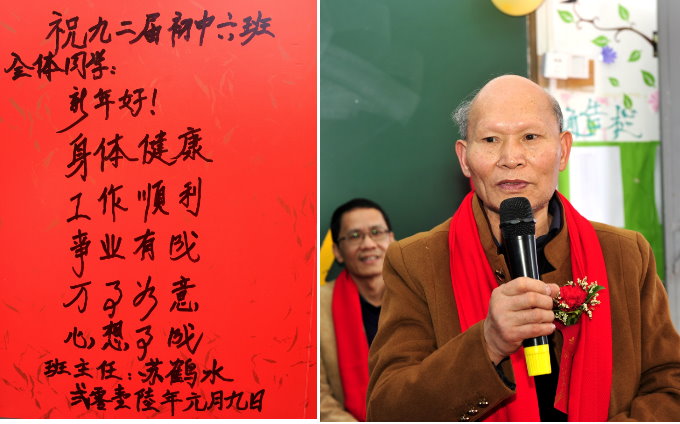 祝九二届初中六班
全体同学：
新年好！
身体健康
工作順利
事业有成
万事如意
心想事成
班主任：苏鹤水
贰零壹陆年元月九日